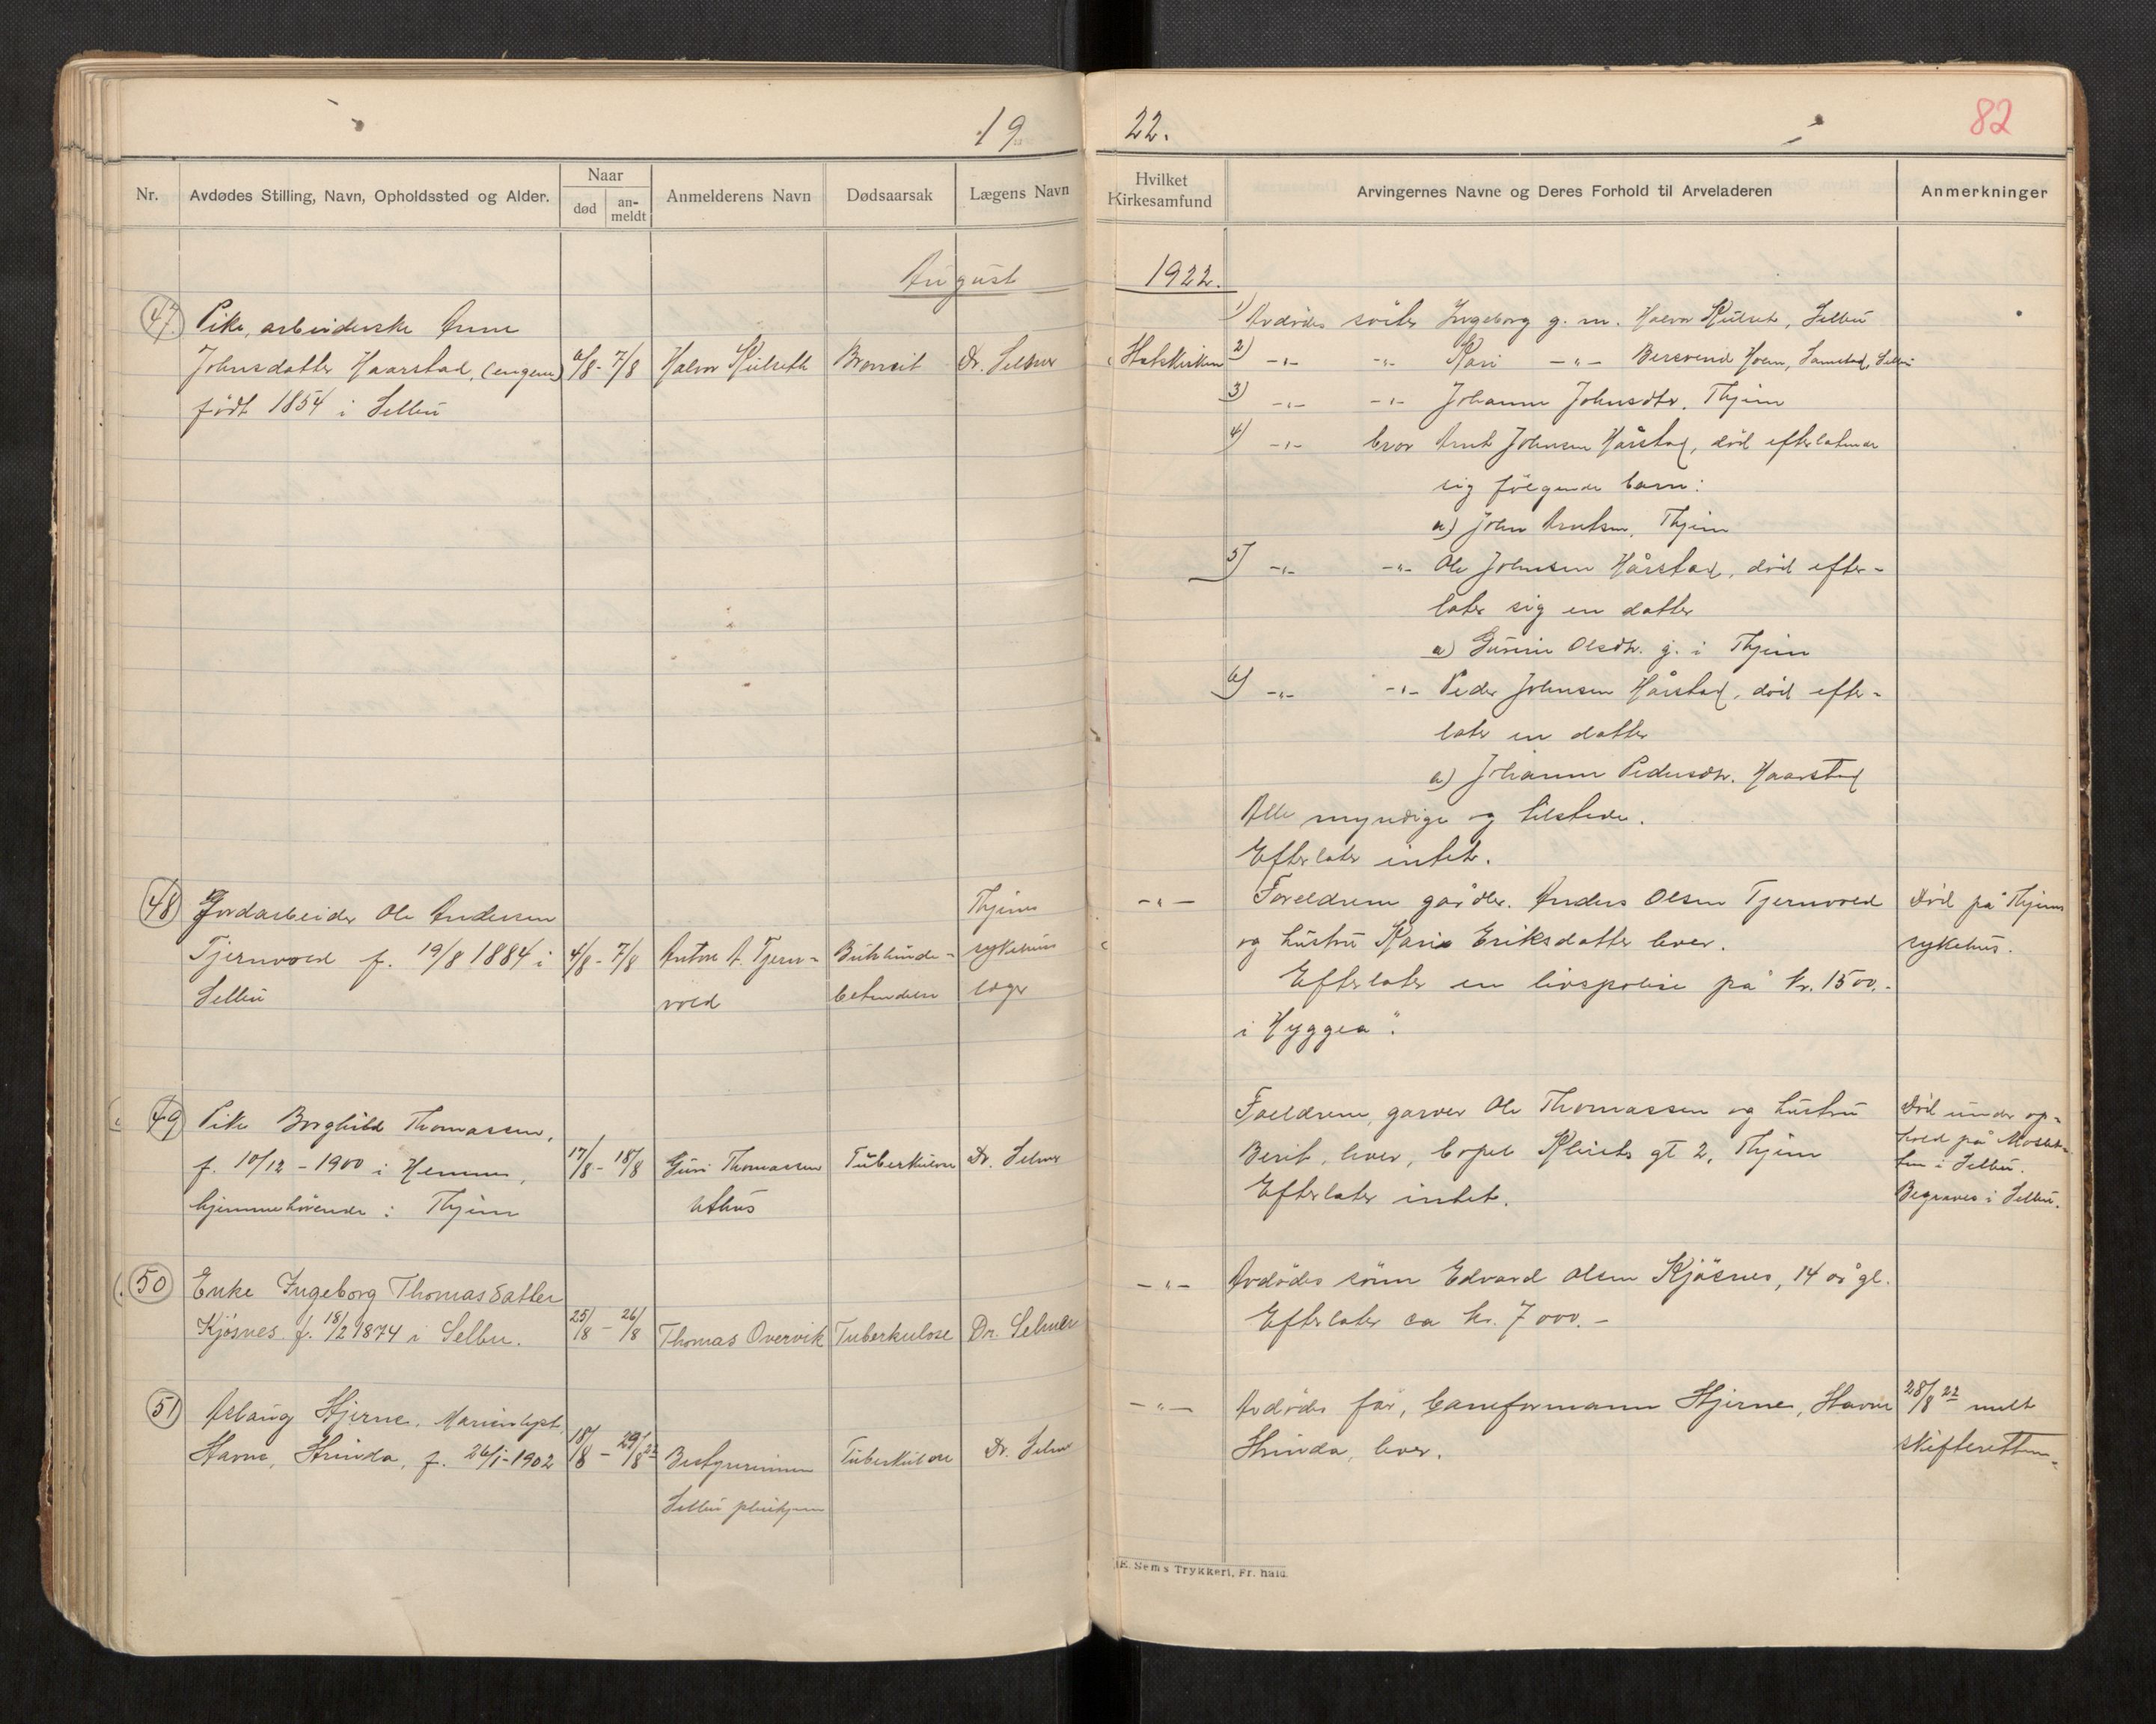 19
22.
82
Nr.
Avdødes Stilling, Navn, Opholdssted og Alder.
Naar
død
an-
meldt
Anmelderens Navn
Dødsaarsak
Lægens Navn
Hvilket
Kirkesamfund
Arvingernes Navne og Deres Forhold til Arveladeren
Anmerkninger
August
1922.
47
Pike, arbeiderske Anne
Johnsdatter Haarstad,
født 1854 i Selbu
6/8 - 7/8
Halvor Kulseth
Dr. Selmer
Statskirken
1) Avdødes søster Ingeborg g. m. Halvor Kulset, Selbu
2) -"- -"- Kari -"- Bersvend Hoem, Selbu
3) -"- -"- Johanna Johnsdtr. Thjem
4) -"- bror Arnt Johnsen Hårstad, död efterlatende
sig fölgende barn:
a) John Arntsen, Thjem
5) -"- -"- Ole Johnsen Hårstad, död efter-
later sig en datter
a) Gurine Olsdtr. g. i Thjem
6) -"- -"- Peder Johnsen Hårstad, död efter-
later en datter
a) Johanna Pedersdtr. Haarstad
Alle myndige og tilstede.
Efterlater intet.
48
Jordarbeider Ole Andersen
Tjernvold f. 19/8 1884 i
Selbu
4/8 - 7/8
Anton A. Tjern-
vold
Bukhinde-
betendelse
Thjems
sykehus
læge
-"-
Foreldrene gårdbr. Anders Olsen Tjernvold
og hustru Kari Eriksdatter lever.
Efterlater en livspolise på kr. 1500.-
i Hyggea".
Död på Thjems
sykehus.
49
Pike Borghild Thomassen,
f. 10/12 - 1900 i Hemne,
hjemmehörende i Thjem
17/8 - 18/8
Guri Thomassen
Uthus
Tuberkulose
Dr. Selmer
Foreldrene, garver Ole Thomassen og hustru
Berit, lever, bopel gt 2, Thjem
Efterlater intet.
Död under op-
hold på
i Selbu.
Begraves i Selbu.
50
Enke Ingeborg Thomasdatter
Kjösnes f. 18/2 1874 i Selbu.
25/8 - 26/8
Thomas Overvik
Tuberkulose
Dr. Selmer
-"-
Avdödes sönn Edvard Olsen Kjösnes, 14 år gl.
Efterlater ca kr. 7000.-
51
Aslaug Stjerne, Marienlyst,
Stavne, Strinda, f. 26/1-1902
18/8 - 29/8 22
Bestyrerinnen
Selbu pleiehjem
Tuberkulose
Dr. Selmer
-"-
Avdödes far, baneformann Stjerne, Stavne
Strinda, lever.
28/8 22 meldt
skifteretten.
E. Sem's Trykkeri, Fr. hald.